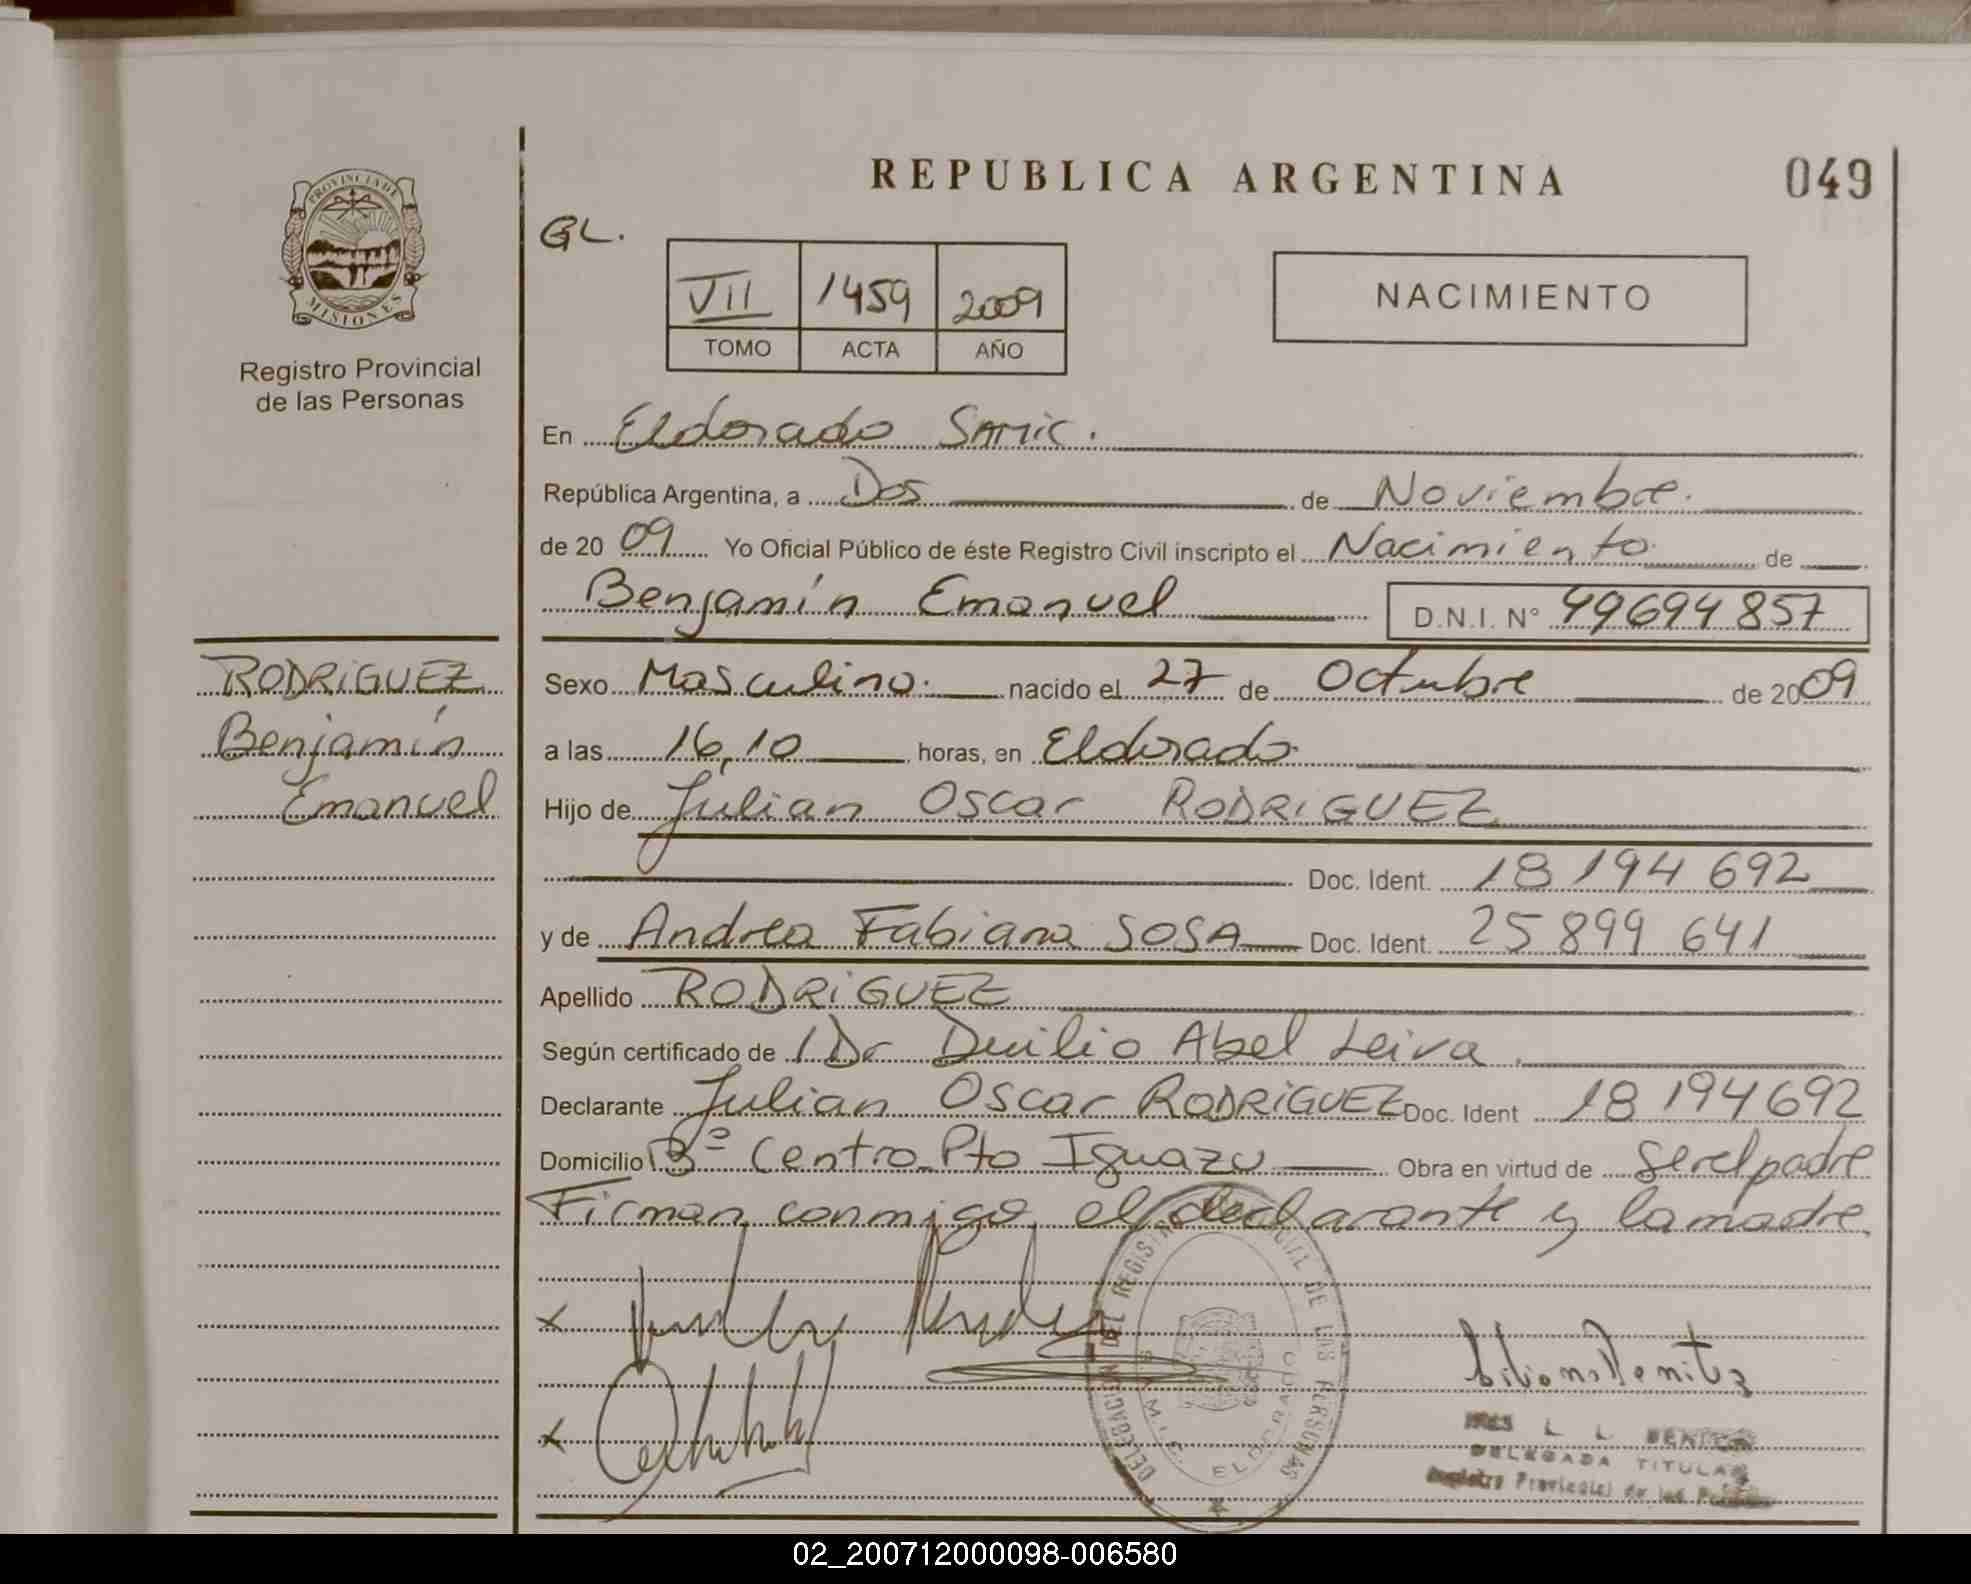 REPUBLICA ARGENTINA
049
PROVINCIA DE
MISIONES
Registro Provincial
de las Personas
GL.
VII 1459 2009
TOMO ACTA AÑO
NACIMIENTO
En Eldorado SAMIC.
República Argentina, a Dos de Noviembre.
de 20 09 Yo Oficial Público de éste Registro Civil inscripto el Nacimiento de
Benjamín Emanuel D.N.I. N° 49694857
RODRIGUEZ
Benjamín
Emanuel
Sexo Masculino. nacido el 27 de Octubre de 2009
a las 16,10 horas, en Eldorado.
Hijo de Julian Oscar RODRIGUEZ
Doc. Ident. 18 194 692
y de Andrea Fabiana SOSA Doc. Ident. 25 899 641
Apellido RODRIGUEZ
Según certificado de 1 Dr Duilio Abel Leiva.
Declarante Julian Oscar RODRIGUEZ Doc. Ident 18 194692
Domicilio B° Centro Pto Iguazu Obra en virtud de ser el padre
Firman conmigo el declarante y la madre
DELEGACION DEL REGISTRO DE LAS PERSONAS
S.A.M.I.C. ELDORADO
L. L. BENITEZ
DELEGADA TITULAR
Registro Provincial de las
02_200712000098-006580